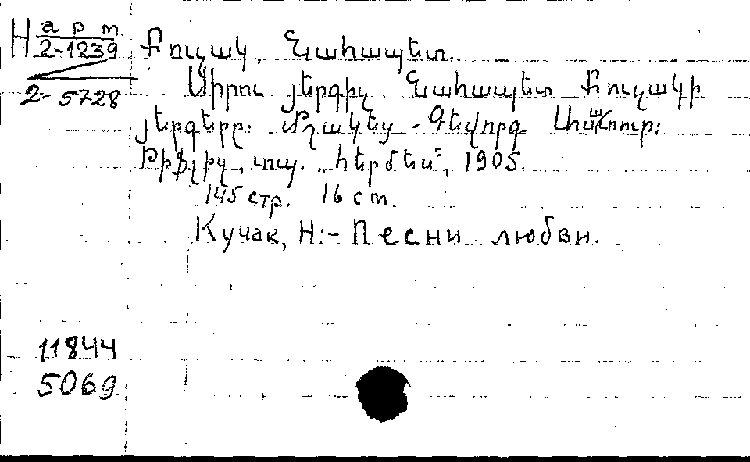 Н арм
2-1239
2-5728
Քուչակ, Նահապետ.
Սիրու յերգիչ Նահապետ Քուչակի
յերգերը: Մշակեց - Գեվորգ Ասատուր:
Թիֆլիզ, տպ. „Հերմես", 1905.
145 стр. 16 см.
Кучак, Н:- Песни любви.
11844
5069